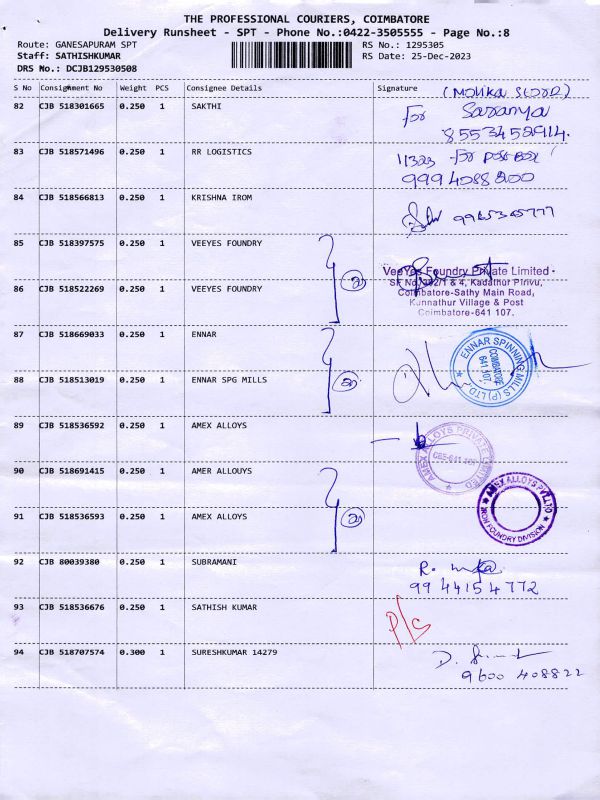 THE PROFESSIONAL COURIERS, COIMBATORE
Delivery Runsheet - SPT - Phone No.:0422-3505555 - Page No.:8
Route: GANESAPURAM SPT RS No.: 1295305
Staff: SATHISHKUMAR RS Date: 25-Dec-2023
DRS No.: DCJB129530508
S No Consignment No Weight PCS Consignee Details Signature
82 CJB 518301665 0.250 1 SAKTHI
For Saranya
8553452914.
83 CJB 518571496 0.250 1 RR LOGISTICS
11323 For Post Box
9994088200
84 CJB 518566813 0.250 1 KRISHNA IROM
9965365777
85 CJB 518397575 0.250 1 VEEYES FOUNDRY
2
VeeYes Foundry Private Limited
SF No. 392/1 & 4, Kadathur Pirivu,
Coimbatore-Sathy Main Road,
Kunnathur Village & Post
Coimbatore-641 107.
86 CJB 518522269 0.250 1 VEEYES FOUNDRY
87 CJB 518669033 0.250 1 ENNAR
ENNAR SPINNING MILLS (P) LTD
COIMBATORE
641 107.
88 CJB 518513019 0.250 1 ENNAR SPG MILLS
2
89 CJB 518536592 0.250 1 AMEX ALLOYS
AMEX ALLOYS PRIVATE LIMITED
CBE-641 107
90 CJB 518691415 0.250 1 AMER ALLOUYS
91 CJB 518536593 0.250 1 AMEX ALLOYS
2
AMEX ALLOYS PVT LTD
IRON FOUNDRY DIVISION
92 CJB 80039380 0.250 1 SUBRAMANI
R.
9944154772
93 CJB 518536676 0.250 1 SATHISH KUMAR
P/C
94 CJB 518707574 0.300 1 SURESHKUMAR 14279
D.
9600 408822